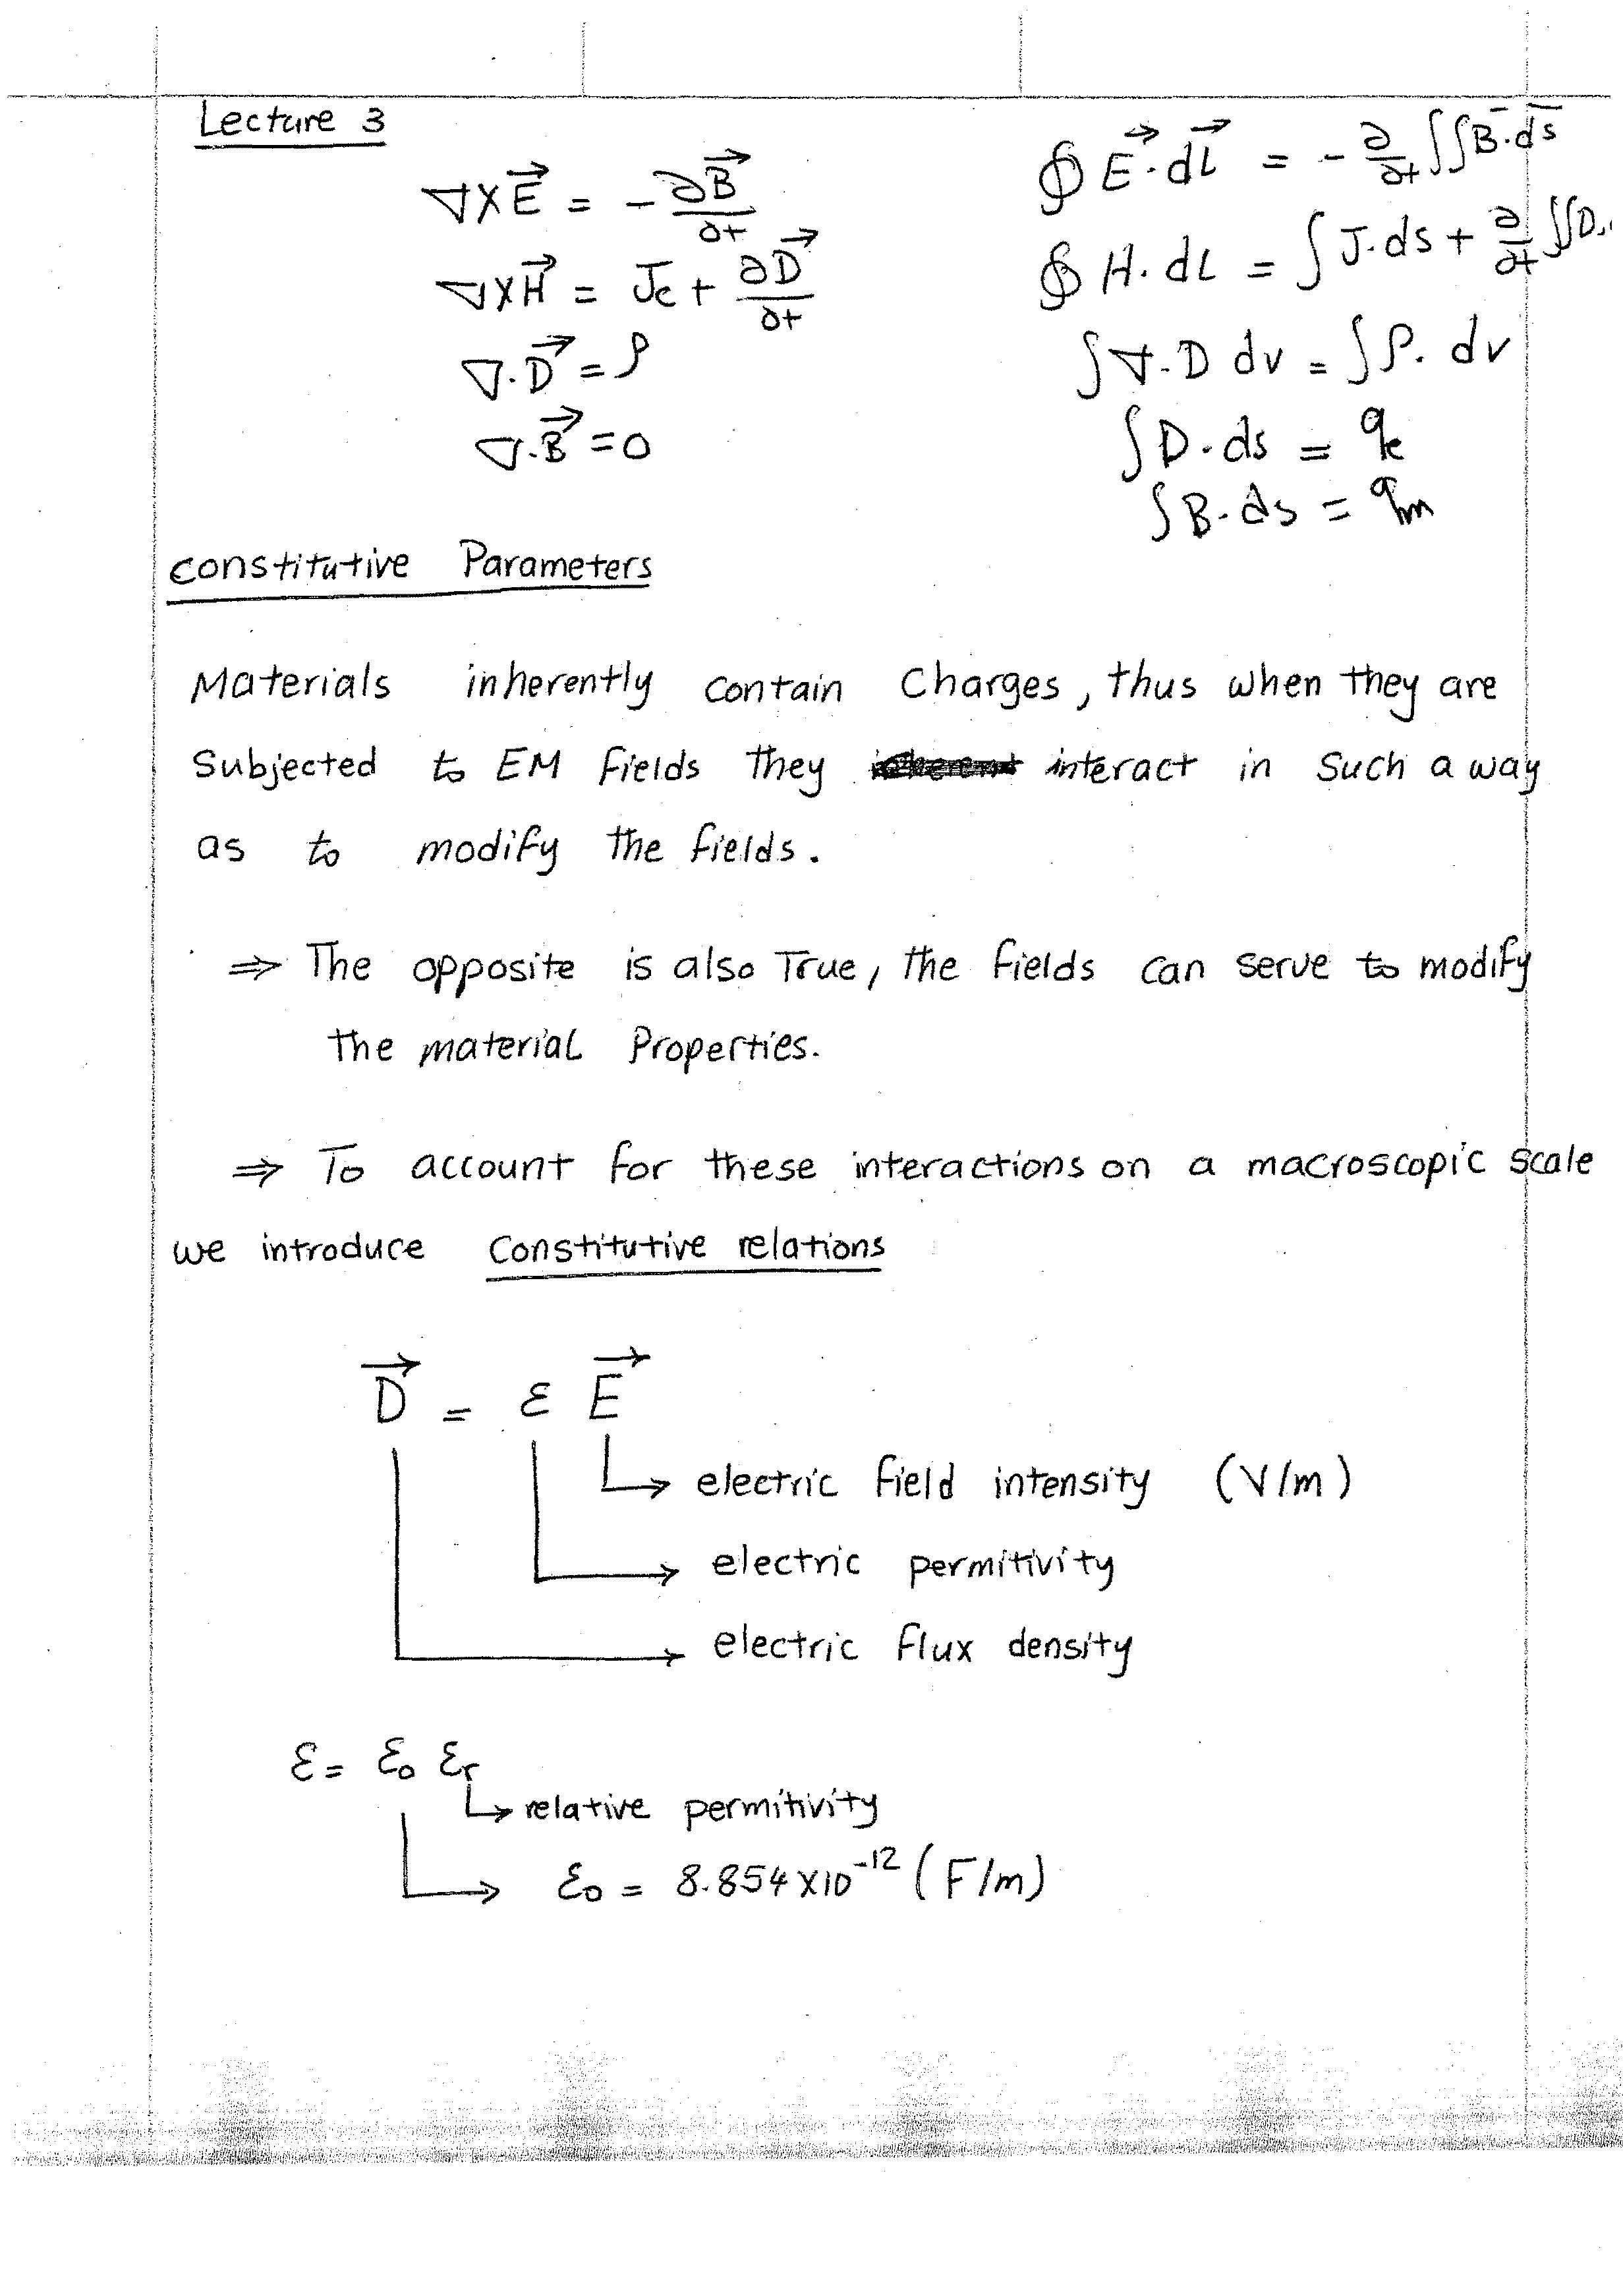 Lecture 3
∇×E⃗ = -∂B⃗/∂t
∮ E⃗·dL⃗ = -∂/∂t ∫∫ B̄·ds̄
∇×H⃗ = Jc + ∂D⃗/∂t
∮ H·dL = ∫ J·ds + ∂/∂t ∫∫ D..
∇·D⃗ = ρ
∫ ∇·D dv = ∫ ρ· dv
∇·B⃗ = 0
∫ D·ds = qe
∫ B·ds = qm
constitutive Parameters
Materials inherently contain Charges, thus when they are
Subjected to EM fields they interact in such a way
as to modify the fields.
⇒ The opposite is also True, the fields can serve to modify
the material Properties.
⇒ To account for these interactions on a macroscopic scale
we introduce Constitutive relations
D⃗ = ε E⃗
electric field intensity (V/m)
electric permitivity
electric flux density
ε = ε₀ εr
relative permitivity
ε₀ = 8.854×10⁻¹² (F/m)